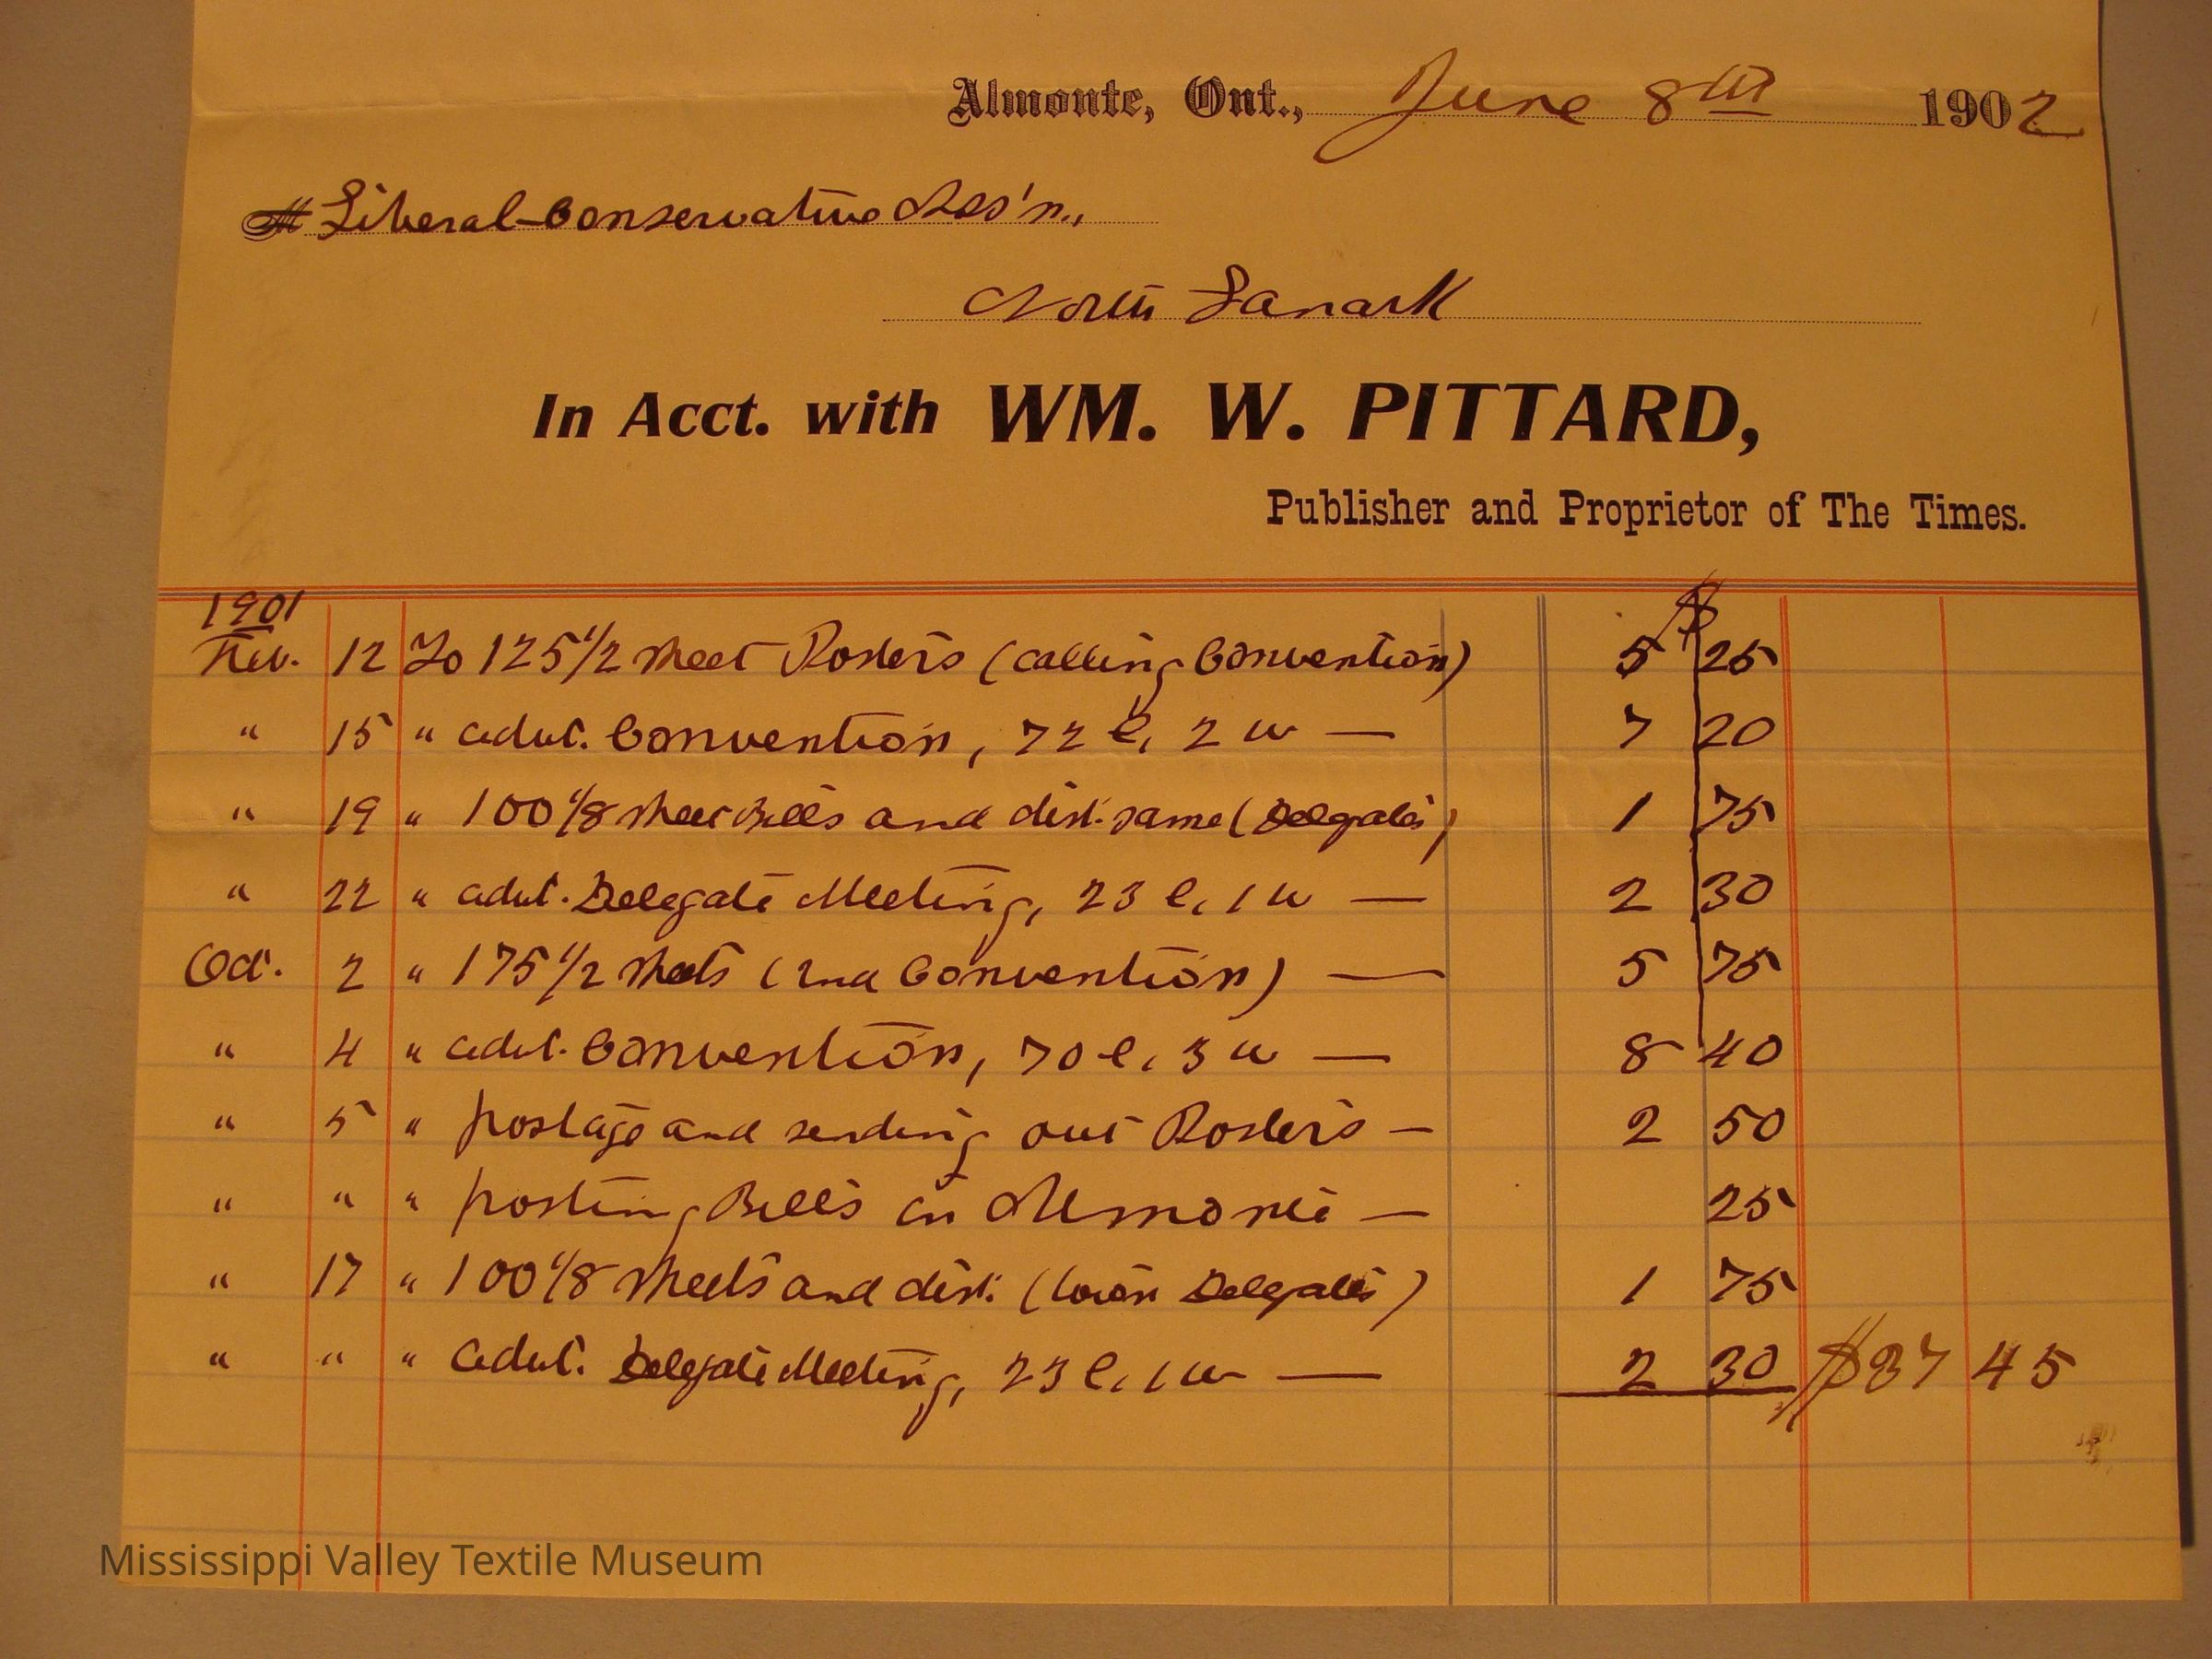 Almonte, Ont., June 8th 1902
Liberal-Conservative Ass'n.,
North Lanark
In Acct. with WM. W. PITTARD,
Publisher and Proprietor of The Times.
1901 $
Feb. 12 To 125 1/2 sheet Posters (calling Convention) 5 25
" 15 " advt. Convention, 72 l, 2 w — 7 20
" 19 " 100 1/8 sheet Bills and dist. same (Delegates) 1 75
" 22 " advt. Delegate Meeting, 23 l, 1 w — 2 30
Oct. 2 " 175 1/2 sheets (2nd Convention) — 5 75
" 4 " advt. Convention, 70 l, 3 w — 8 40
" 5 " postage and sending out Posters — 2 50
" " " posting Bills in Almonte — 25
" 17 " 100 1/8 sheets and dist. (town Delegates) 1 75
" " " advt. Delegate Meeting, 23 l, 1 w — 2 30 $37 45
Mississippi Valley Textile Museum